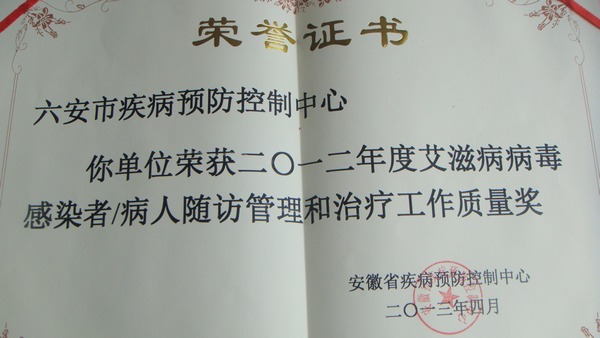 荣誉证书
六安市疾病预防控制中心
你单位荣获二〇一二年度艾滋病病毒
感染者/病人随访管理和治疗工作质量奖
安徽省疾病预防控制中心
二〇一三年四月